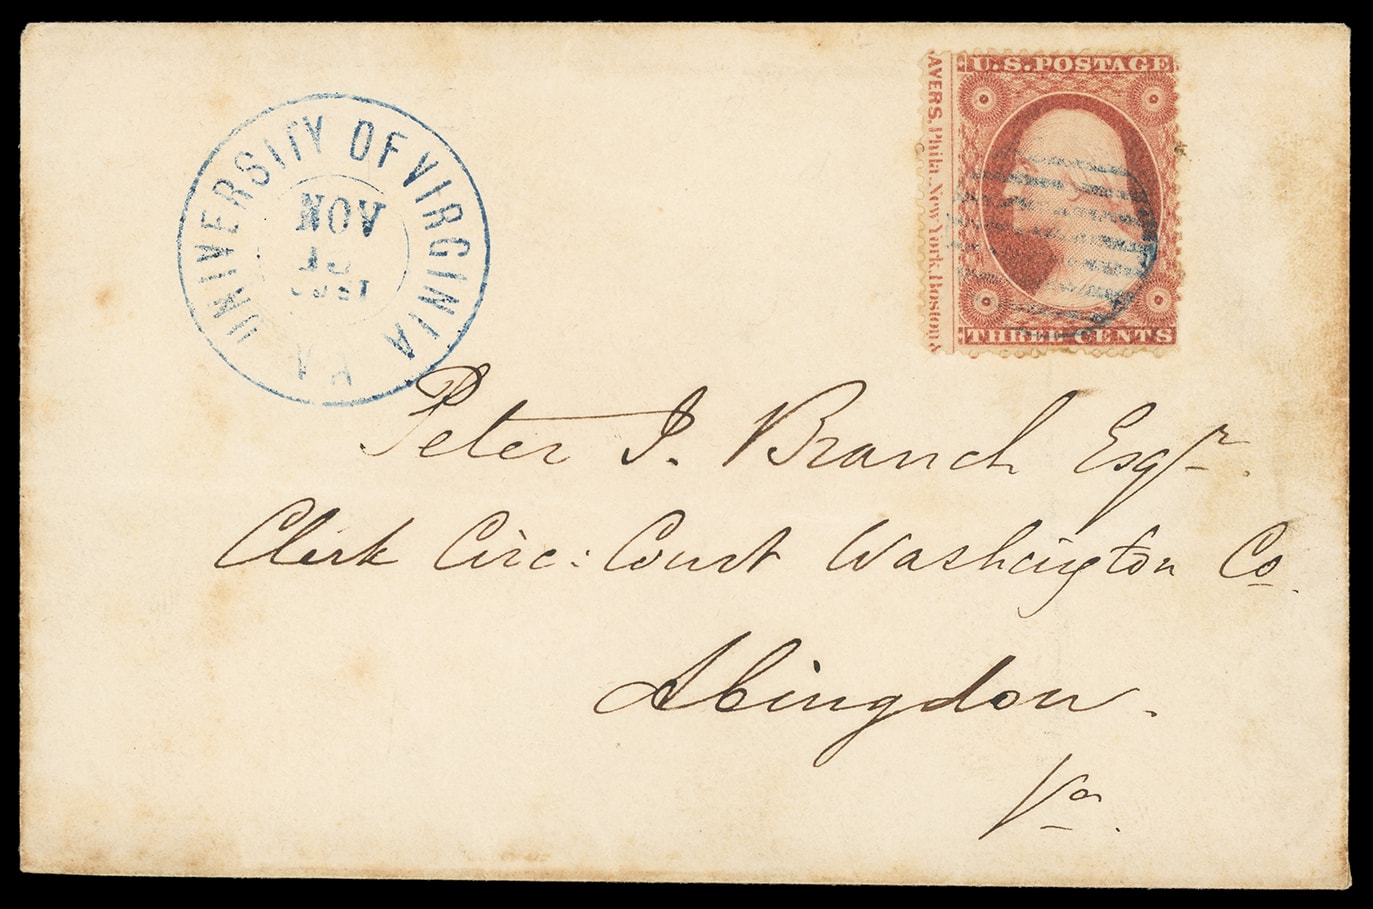 UNIVERSITY OF VIRGINIA
VA
NOV
U.S. POSTAGE
AVERS, Phila. New York, Boston &
THREE CENTS
Peter J. Branch Esqr.
Clerk Circ: Court Washington Co.
Abingdon.
Va.